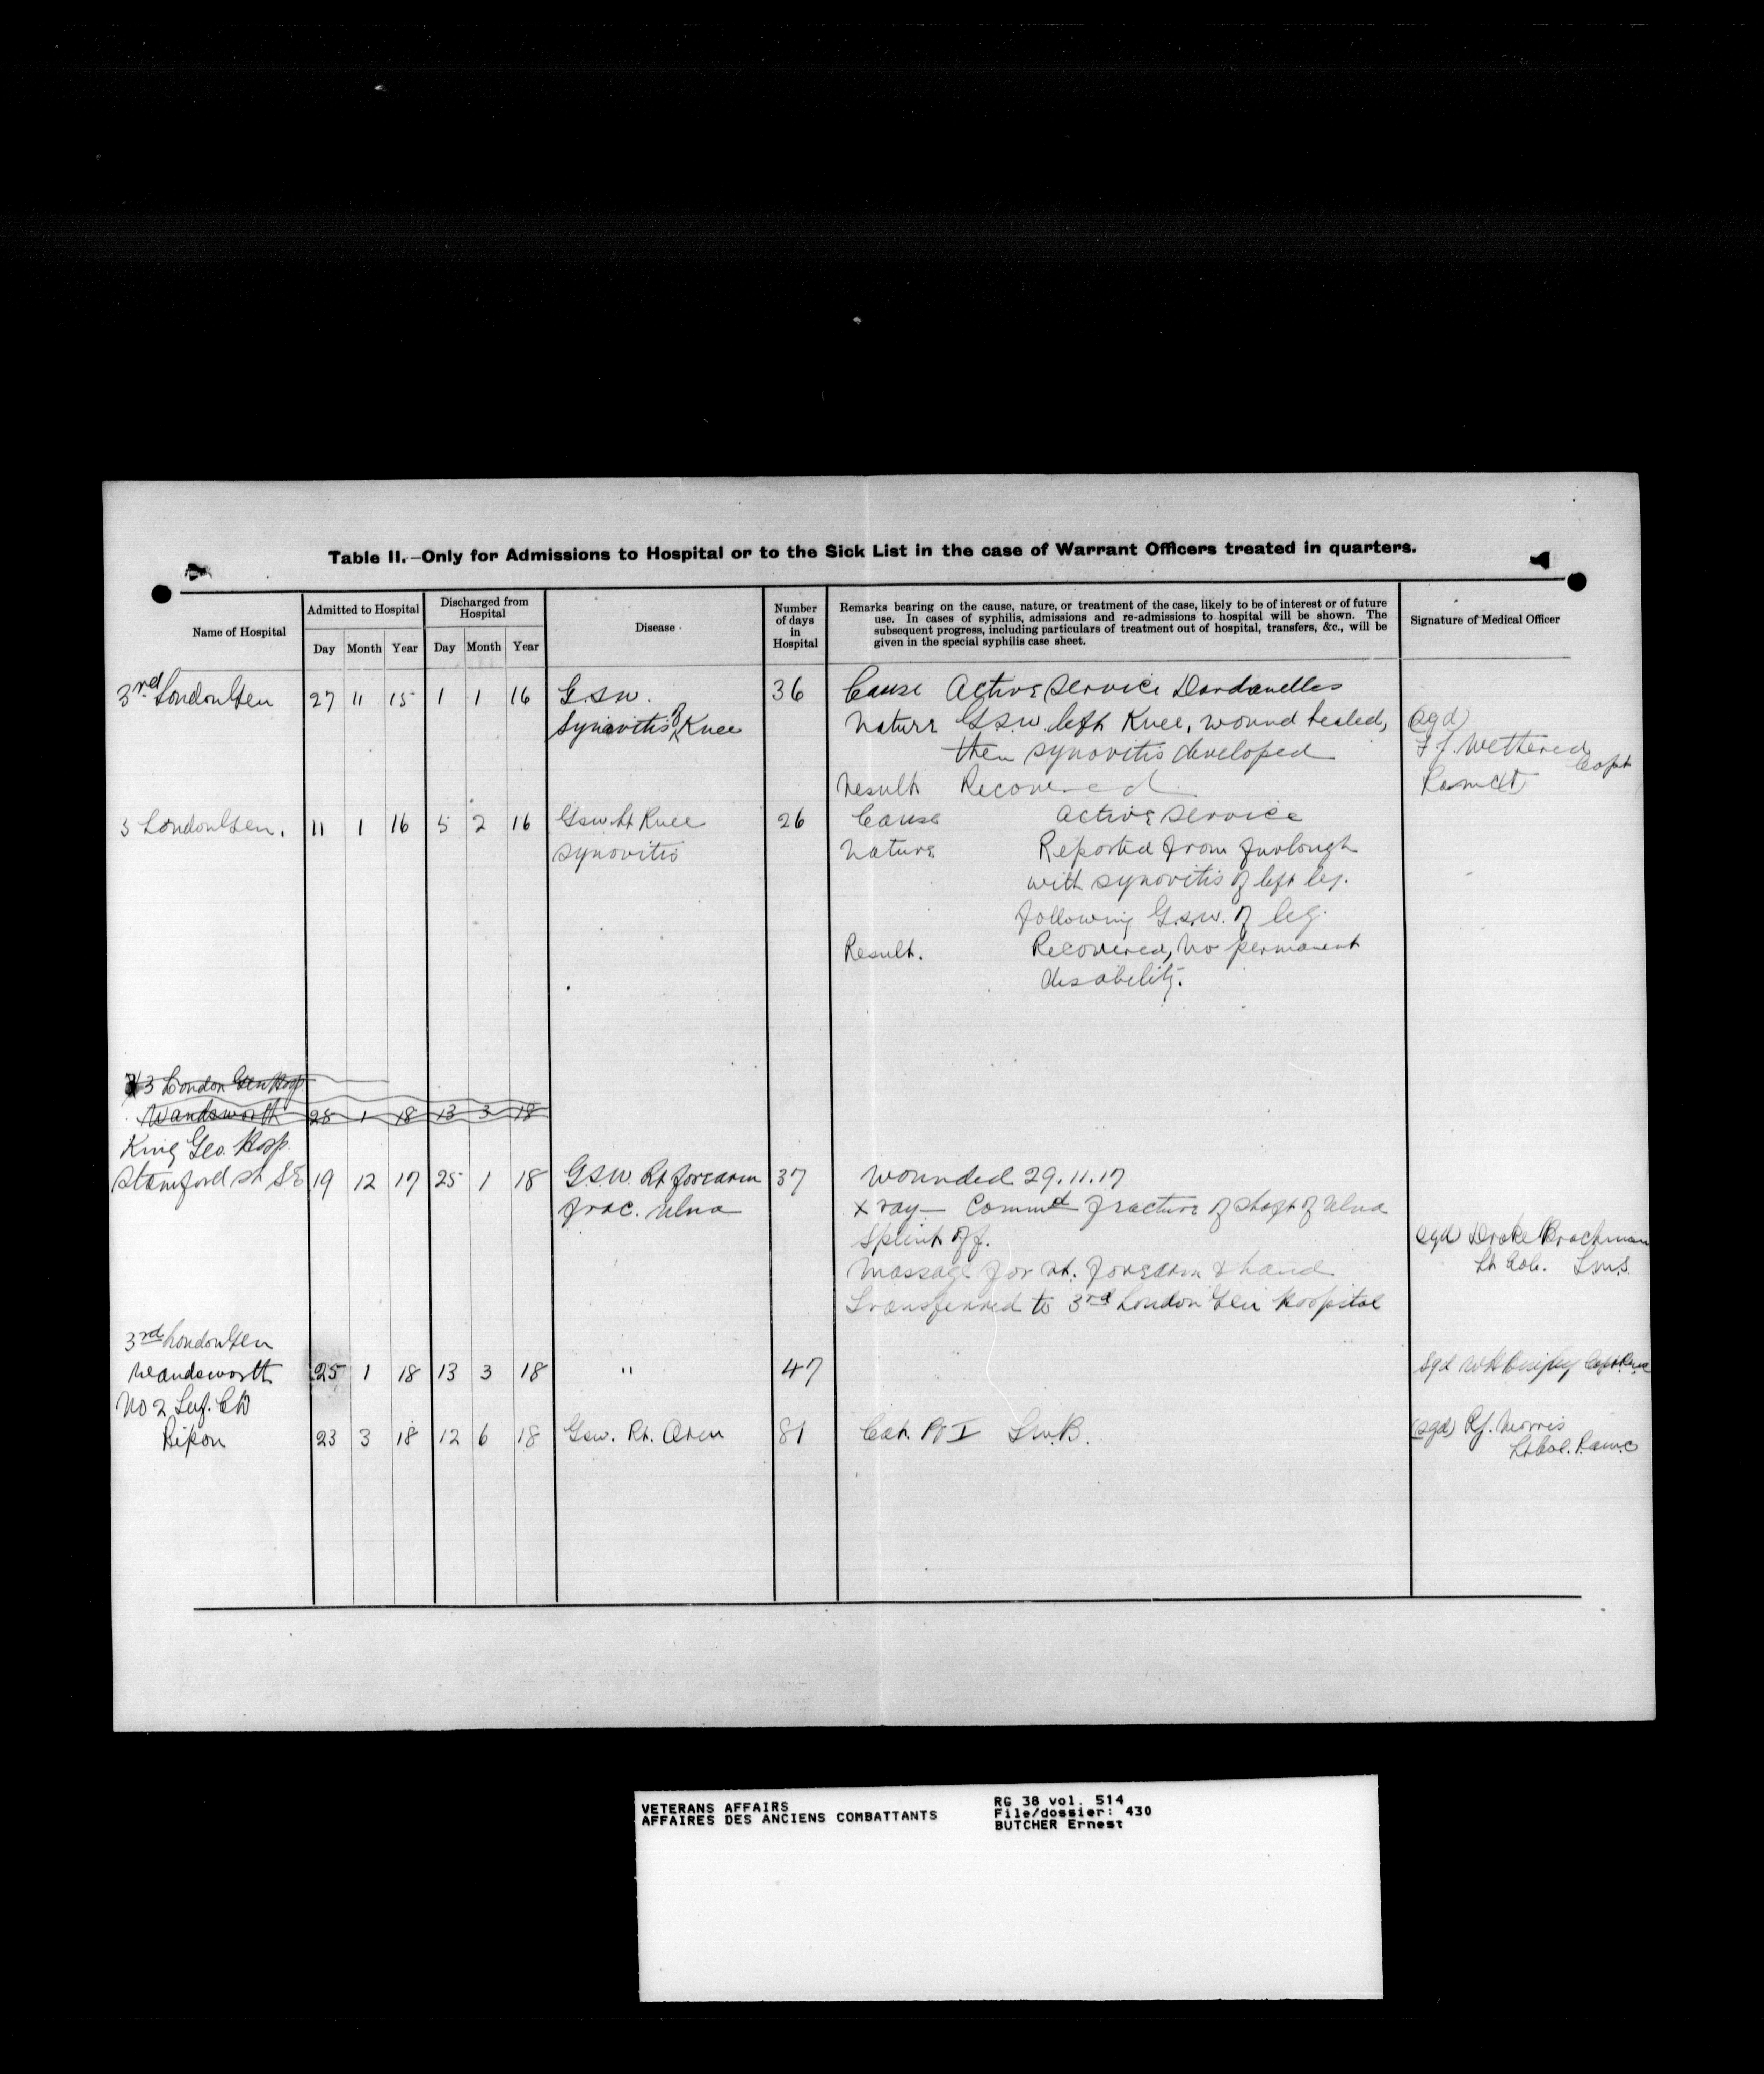 Table II.—Only for Admissions to Hospital or to the Sick List in the case of Warrant Officers treated in quarters.
Name of Hospital
Admitted to Hospital
Day Month Year
Discharged from Hospital
Day Month Year
Disease
Number of days in Hospital
Remarks bearing on the cause, nature, or treatment of the case, likely to be of interest or of future
use. In cases of syphilis, admissions and re-admissions to hospital will be shown. The
subsequent progress, including particulars of treatment out of hospital, transfers, &c., will be
given in the special syphilis case sheet.
Signature of Medical Officer
3rd London Gen 27 11 15 1 1 16 G.S.W. 36 Cause Active Service Dardanelles
Synovitis of Knee Nature G.S.W. left Knee, wound healed, (sgd)
then synovitis developed F J Wethered Capt
Result Recovered
3 London Gen. 11 1 16 5 2 16 Gsw Lt Knee 26 Cause Active Service
Synovitis Nature Reported from furlough
with synovitis of left leg.
following G.S.W. of leg.
Result. Recovered, no permanent
disability.
3 London Gen Hosp
Wandsworth 28 1 18 13 3 18
King Geo. Hosp
Stamford St SE 19 12 17 25 1 18 G.S.W. Rt forearm 37 Wounded 29.11.17
frac. ulna X ray — Commtd fracture of shaft of ulna
Splint off. sgd Drake Brockman
Massage for rt. forearm & hand Lt Col. I.M.S.
Transferred to 3rd London Gen Hospital
3rd London Gen
Wandsworth 25 1 18 13 3 18 " 47 Sgd
No 2 CD
Ripon 23 3 18 12 6 18 Gsw. Rt. Arm 81 Cat. (sgd) R.J. Morris
Lt Col. R.a.m.c
VETERANS AFFAIRS
AFFAIRES DES ANCIENS COMBATTANTS
RG 38 vol. 514
File/dossier: 430
BUTCHER Ernest